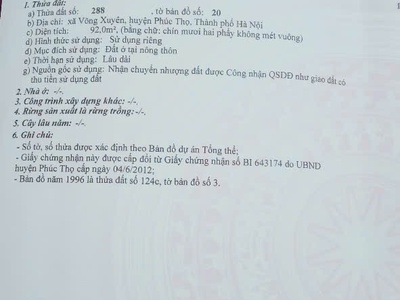 1. Thửa đất:
a) Thửa đất số: 288 , tờ bản đồ số: 20
b) Địa chỉ: xã Võng Xuyên, huyện Phúc Thọ, Thành phố Hà Nội
c) Diện tích: 92,0m², (bằng chữ: chín mươi hai phẩy không mét vuông)
d) Hình thức sử dụng: Sử dụng riêng
đ) Mục đích sử dụng: Đất ở tại nông thôn
e) Thời hạn sử dụng: Lâu dài
g) Nguồn gốc sử dụng: Nhận chuyển nhượng đất được Công nhận QSDĐ như giao đất có
thu tiền sử dụng đất
2. Nhà ở: -/-.
3. Công trình xây dựng khác: -/-.
4. Rừng sản xuất là rừng trồng: -/-.
5. Cây lâu năm: -/-.
6. Ghi chú:
- Số tờ, số thửa được xác định theo Bản đồ dự án Tổng thể;
- Giấy chứng nhận này được cấp đổi từ Giấy chứng nhận số BI 643174 do UBND
huyện Phúc Thọ cấp ngày 04/6/2012;
- Bản đồ năm 1996 là thửa đất số 124c, tờ bản đồ số 3.